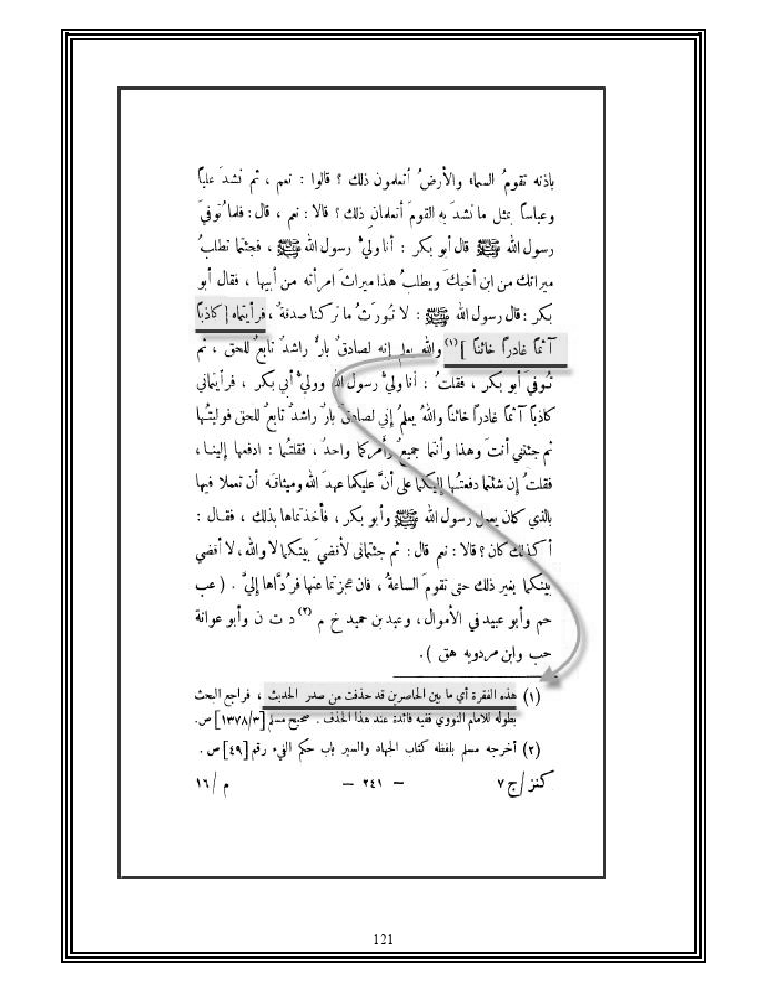 باذنه تقومُ السماء والأرضُ أتعلمون ذلك ؟ قالوا : نعم ، ثم نشدَ علياً
وعباساً بمثل ما نشدَ به القومَ أتعلمانِ ذلك ؟ قالا : نعم ، قال : فلما تُوفيَ
رسول الله ﷺ قال أبو بكر : أنا وليُّ رسول الله ﷺ ، فجئتما تطلبُ
ميراثك من ابن أخيكَ ويطلبُ هذا ميراثَ امرأته من أبيها ، فقال أبو
بكر : قال رسول الله ﷺ : لا نُورَثُ ما تركنا صدقةٌ ، فرأيتماه [ كاذباً
آثماً غادراً خائناً ](١) والله يعلم إنه لصادقٌ بارٌّ راشدٌ تابعٌ للحق ، ثم
تُوفيَ أبو بكر ، فقلتُ : أنا وليُّ رسول الله ووليُّ أبي بكر ، فرأيتماني
كاذباً آثماً غادراً خائناً واللهُ يعلمُ إني لصادقٌ بارٌ راشدٌ تابعٌ للحق فوليتُها
ثم جئتني أنتَ وهذا وأنتما جميعٌ وأمركما واحدٌ ، فقلتُما : ادفعها إلينا ،
فقلتُ إن شئتما دفعتُها إليكما على أنَّ عليكما عهدَ الله وميثاقَه أن تعملا فيها
بالذي كان يعمل رسول الله ﷺ وأبو بكر ، فأخذتماها بذلك ، فقال :
أكذلك كان ؟ قالا : نعم قال : ثم جئتماني لأقضيَ بينكما لا والله ، لا أقضي
بينكما بغير ذلك حتى تقومَ الساعةُ ، فان عجزتما عنها فرُدَّاها إليَّ . ( عب
حم وأبو عبيد في الأموال ، وعبد بن حميد خ م (٢) د ت ن وأبو عوانة
حب وابن مردويه هق ) .
(١) هذه الفقرة أي ما بين الحاصرين قد حذفت من صدر الحديث ، فراجع البحث
بطوله للامام النووي ففيه فائدة عند هذا الحذف . صحيح مسلم [١٣٧٨/٣] ص.
(٢) أخرجه مسلم بلفظه كتاب الجهاد والسير باب حكم الفيء رقم [٤٩] ص .
كنز / ج ٧ — ٢٤١ — م / ١٦
121